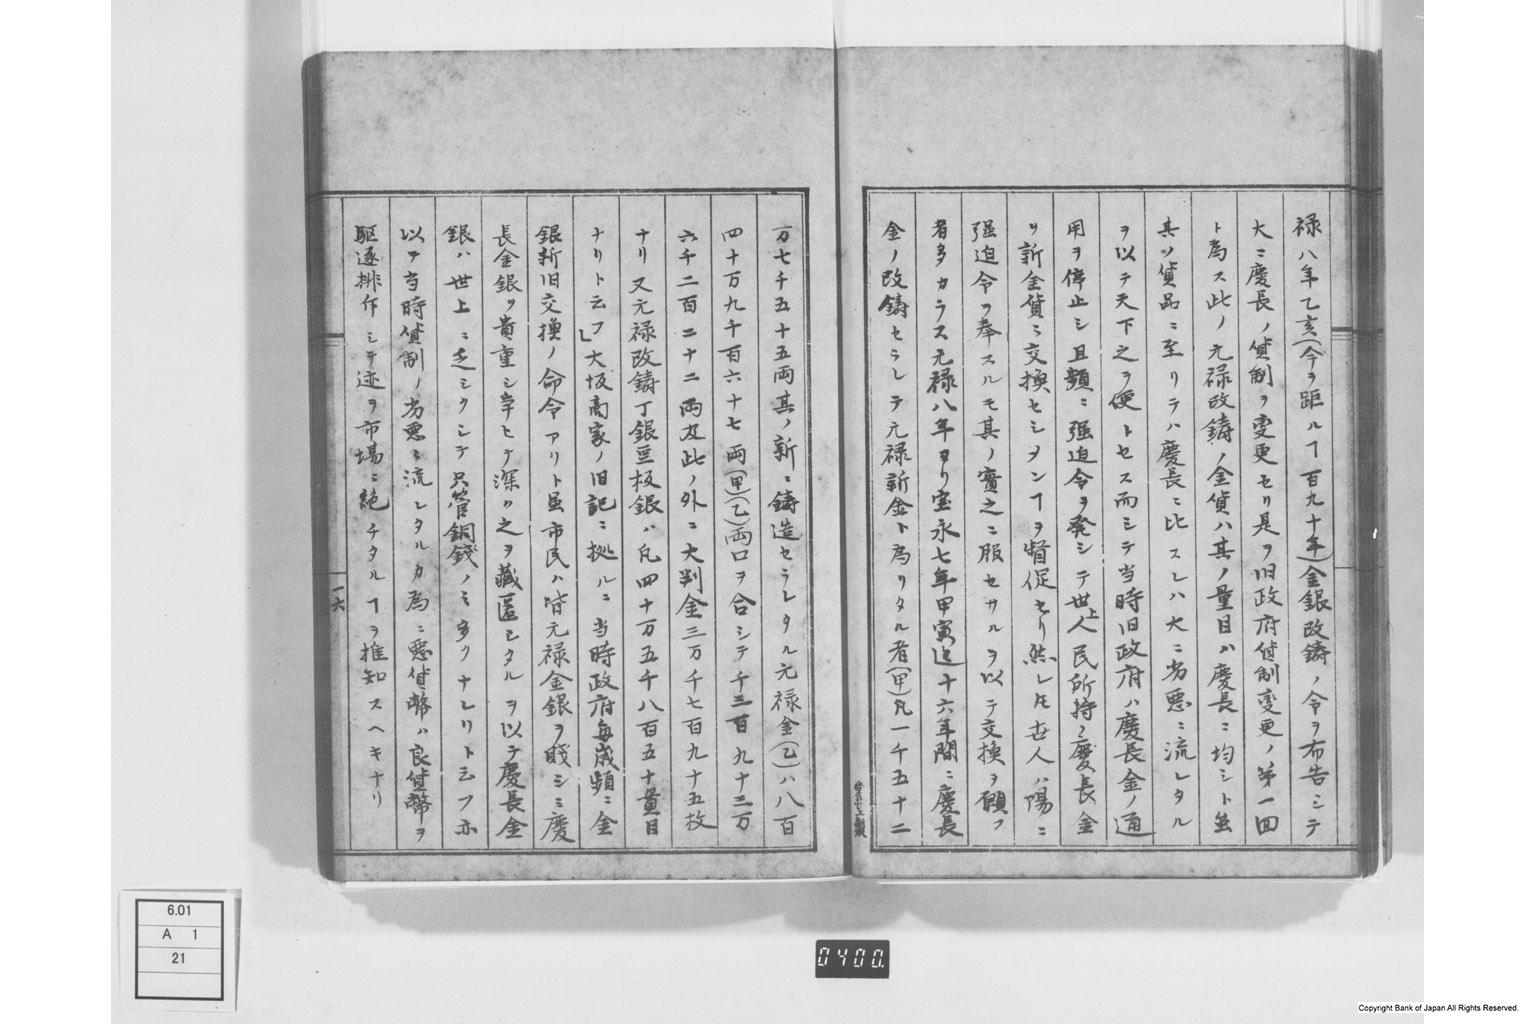 禄八年乙亥(今ヲ距ルヿ百九十年)金銀改鋳ノ令ヲ布告シテ
大ニ慶長ノ貨制ヲ変更セリ是ヲ旧政府貨制変更ノ第一回
ト為ス此ノ元禄改鋳ノ金貨ハ其ノ量目ハ慶長ニ均シト虽
其ノ貨品ニ至リテハ慶長ニ比スレハ大ニ劣悪ニ流レタル
ヲ以テ天下之ヲ便トセス而シテ当時旧政府ハ慶長金ノ通
用ヲ停止シ且頻ニ強迫令ヲ発シテ世上人民所持ノ慶長金
ヲ新金貨ニ交換セシメンヿヲ督促セリ然レ𪜈世人ハ陽ニ
强迫令ヲ奉スルモ其ノ實之ニ服セサルヲ以テ交換ヲ願フ
者多カラス元禄八年ヨリ宝永七年甲寅迄十六年間ニ慶長
金ノ改鋳セラレテ元禄新金ト為リタル者(甲)凡一千五十二
万七千五十五両其ノ新ニ鋳造セラレタル元禄金(乙)ハ八百
四十万九千百六十七両(甲)(乙)両口ヲ合シテ千三百九十三万
六千二百二十二両及此ノ外ニ大判金三万千七百九十五枚
ナリ又元禄改鋳丁銀豆板銀ハ凡四十万五千八百五十貫目
ナリト云フ」大坂商家ノ旧記ニ拠ルニ当時政府毎歳頻ニ金
銀新旧交換ノ命令アリト虽市民ハ皆元禄金銀ヲ賤シミ慶
長金銀ヲ貴重シ挙ヒテ深ク之ヲ蔵匿シタルヲ以テ慶長金
銀ハ世上ニ乏シクシテ只管銅錢ノミ多クナレリト云フ亦
以テ当時貨制ノ劣悪ニ流レタルカ為ニ悪貨幣ハ良貨幣ヲ
駆逐排斥シテ迹ヲ市場ニ絶チタルヿヲ推知スヘキナリ
一六
6.01
A 1
21
0400.
Copyright Bank of Japan All Rights Reserved.